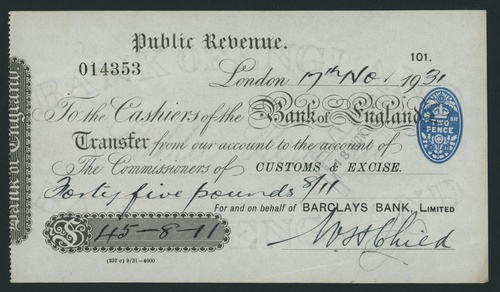 Public Revenue.
101.
014353
London 17th Nov 1931
To the Cashiers of the Bank of England
TWO PENCE
Transfer from our account to the account of
The Commissioners of CUSTOMS & EXCISE.
Forty five pounds 8/11
For and on behalf of BARCLAYS BANK, LIMITED
£ 45-8-11
(237 c) 9/31-4000
Bank of England